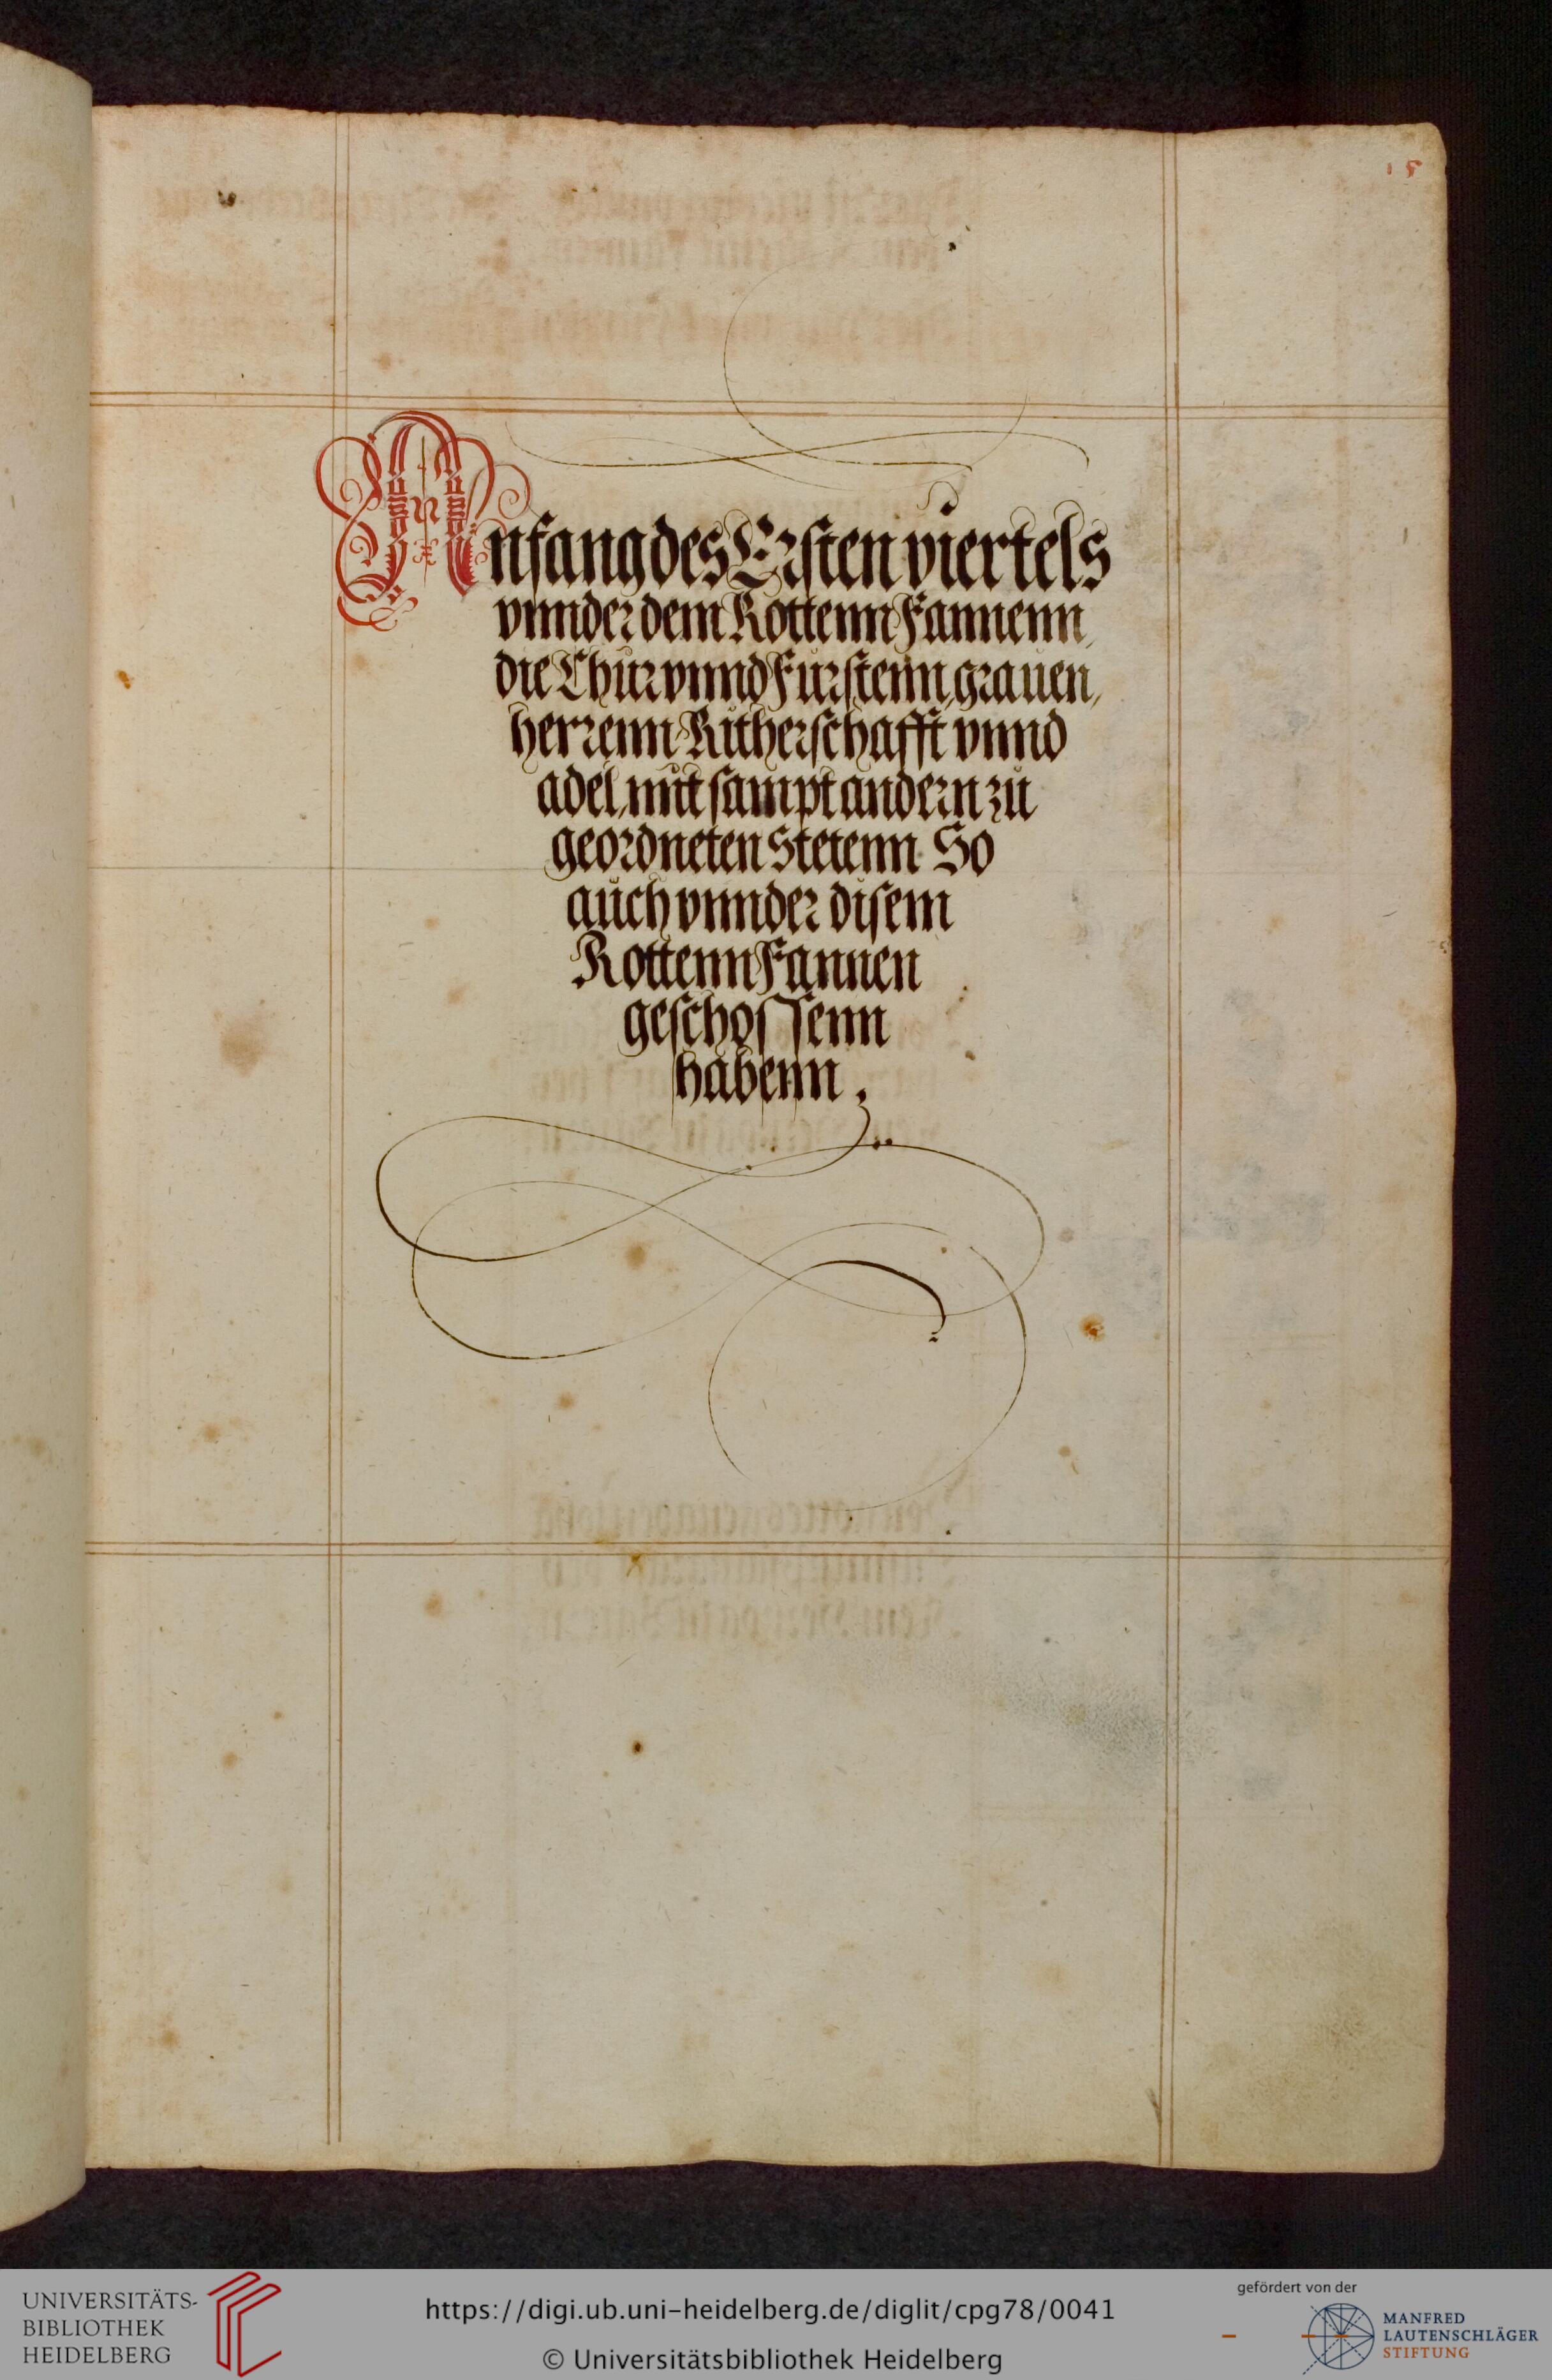 15
Anfang des Ersten viertels
vnnder dem Rottenn Fannenn,
die Chur vnnd Furstenn, grauen,
herrenn Ritherschafft vnnd
adel, mit sampt andern zu
geordneten Stetenn So
auch vnnder disem
Rottenn Fannen
geschossenn
habenn.
UNIVERSITÄTS-
BIBLIOTHEK
HEIDELBERG
https://digi.ub.uni-heidelberg.de/diglit/cpg78/0041
© Universitätsbibliothek Heidelberg
gefördert von der
MANFRED
LAUTENSCHLÄGER
STIFTUNG